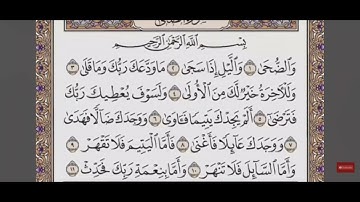 بِسْمِ اللَّهِ الرَّحْمَٰنِ الرَّحِيمِ
وَالضُّحَىٰ ١ وَاللَّيْلِ إِذَا سَجَىٰ ٢ مَا وَدَّعَكَ رَبُّكَ وَمَا قَلَىٰ ٣
وَلَلْآخِرَةُ خَيْرٌ لَّكَ مِنَ الْأُولَىٰ ٤ وَلَسَوْفَ يُعْطِيكَ رَبُّكَ
فَتَرْضَىٰ ٥ أَلَمْ يَجِدْكَ يَتِيمًا فَآوَىٰ ٦ وَوَجَدَكَ ضَالًّا فَهَدَىٰ
٧ وَوَجَدَكَ عَائِلًا فَأَغْنَىٰ ٨ فَأَمَّا الْيَتِيمَ فَلَا تَقْهَرْ ٩
وَأَمَّا السَّائِلَ فَلَا تَنْهَرْ ١٠ وَأَمَّا بِنِعْمَةِ رَبِّكَ فَحَدِّثْ ١١